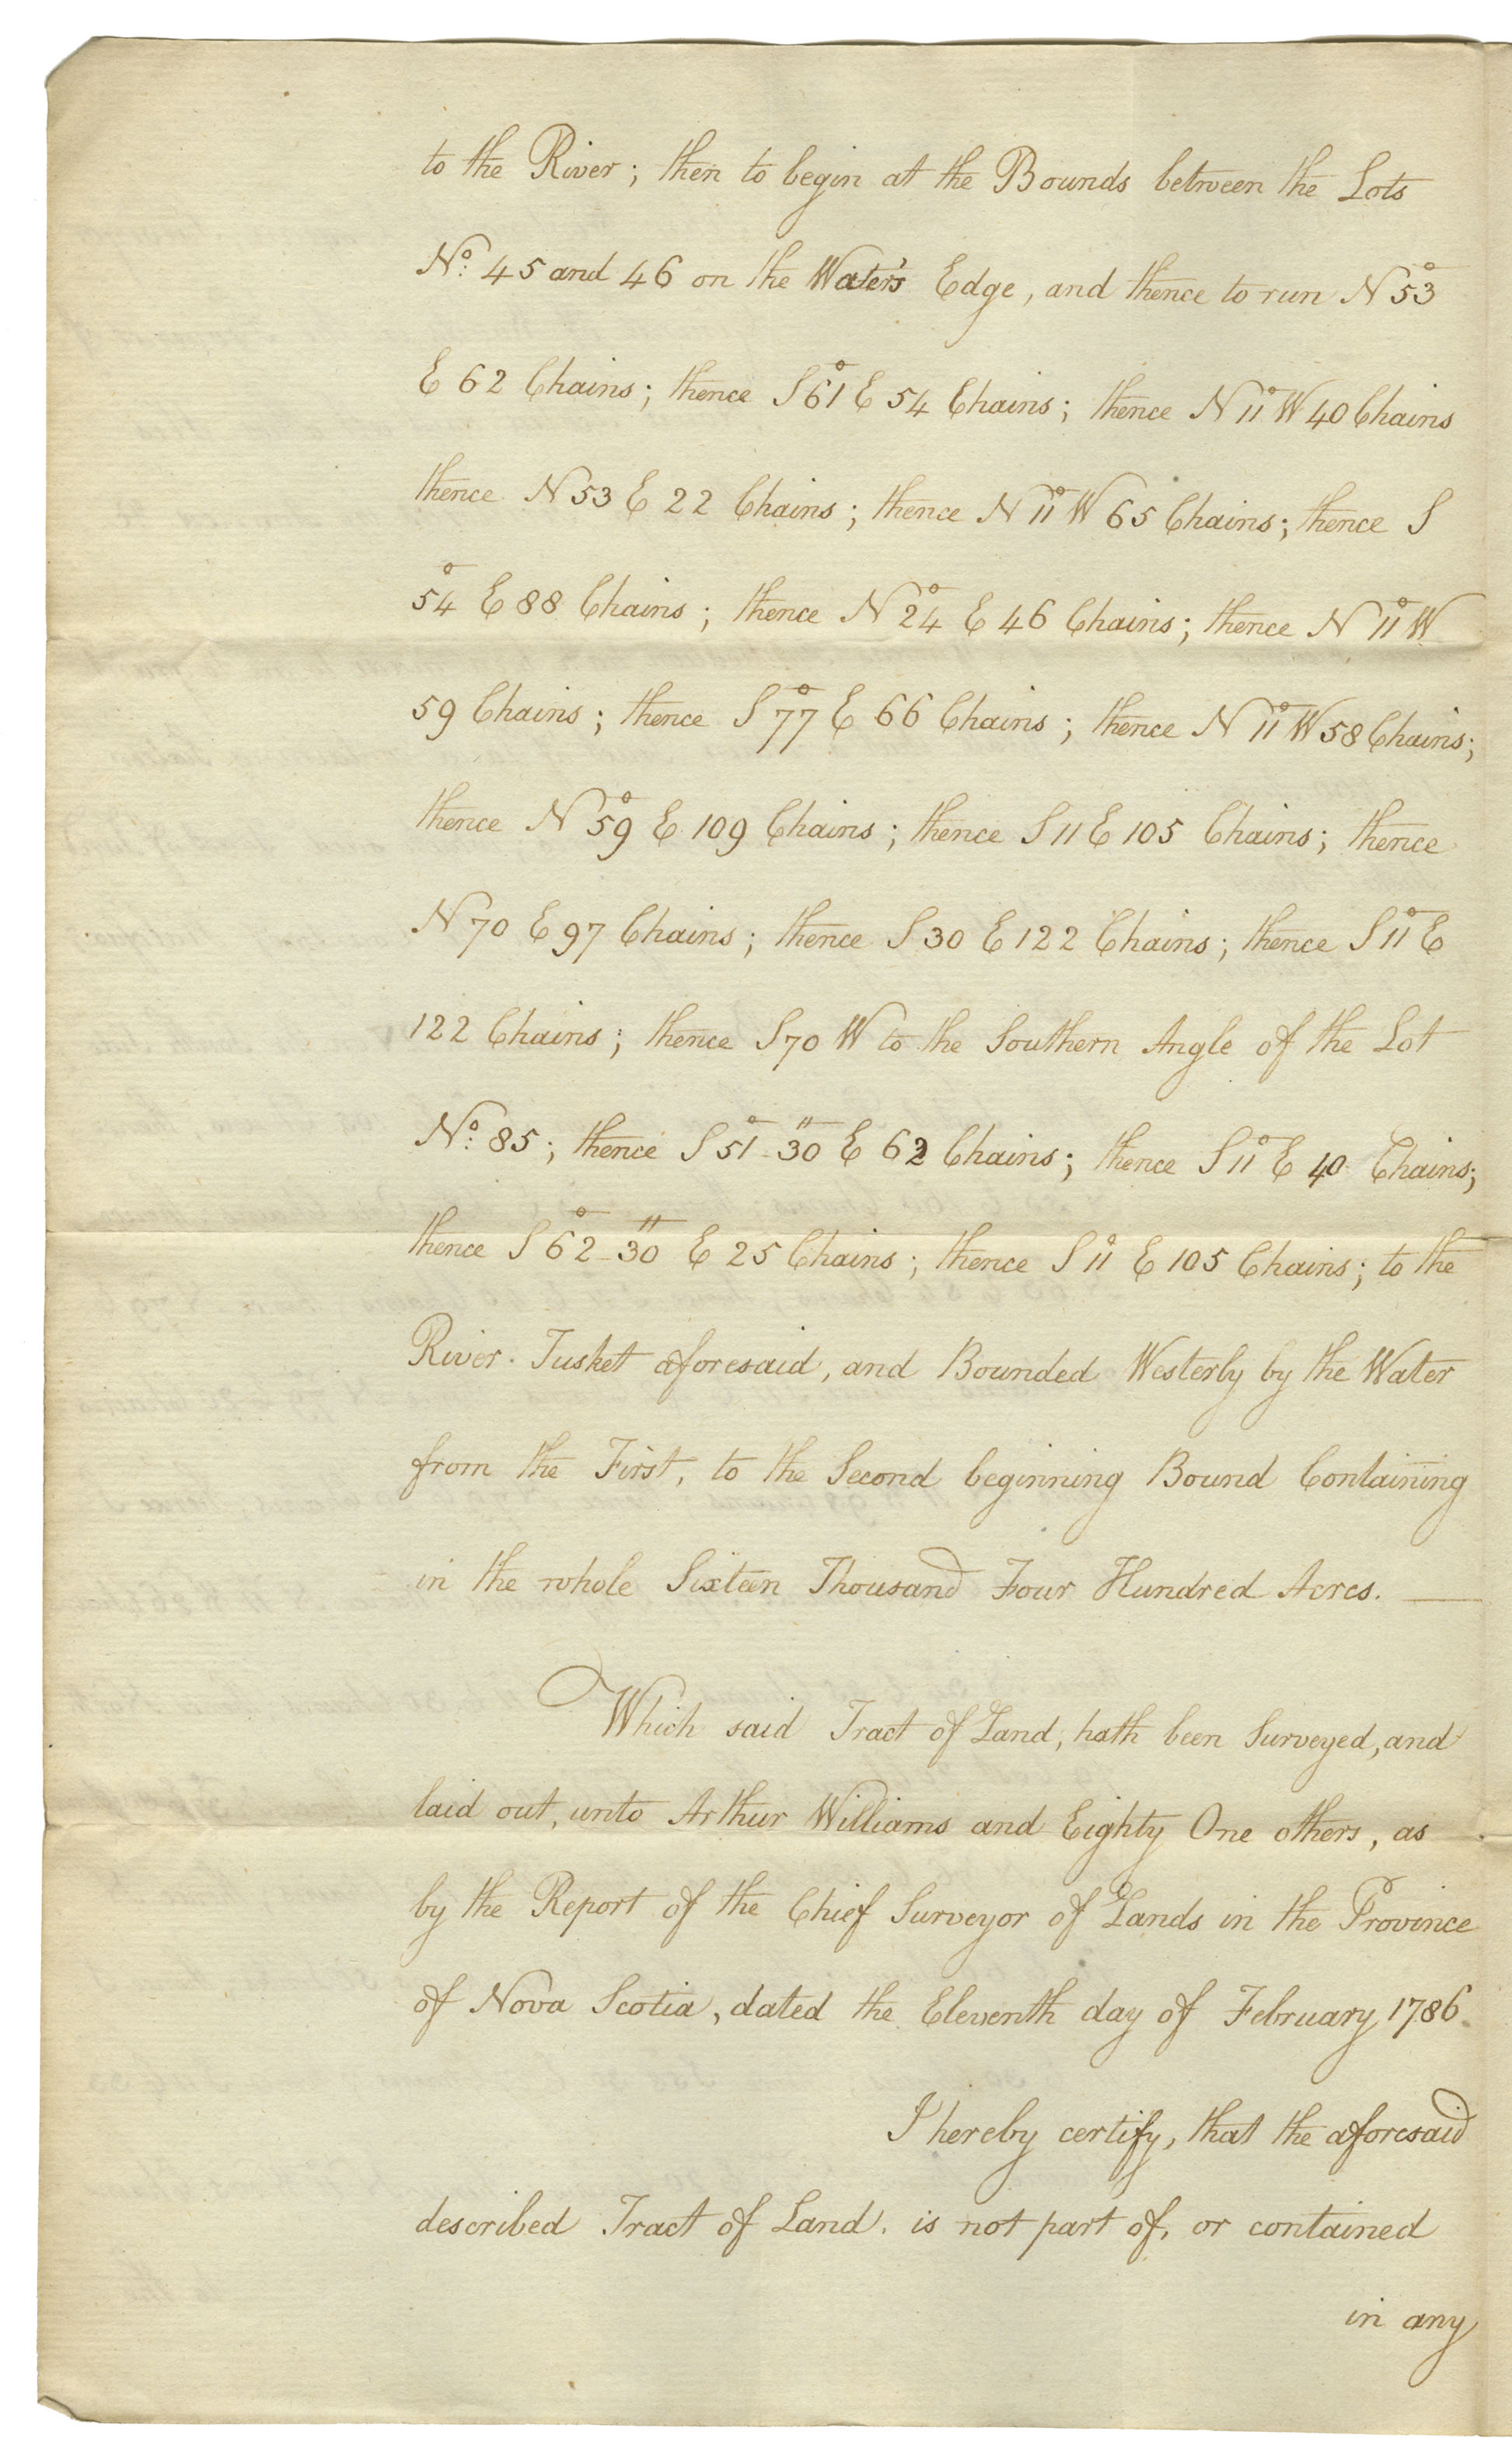 to the River; then to begin at the Bounds between the Lots
No: 45 and 46 on the Water's Edge, and thence to run N 53°
E 62 Chains; thence S 61° E 54 Chains; thence N 11° W 40 Chains
thence N 53 E 22 Chains; thence N 11° W 65 Chains; thence S
54° E 88 Chains; thence N 24° E 46 Chains; thence N 11° W
59 Chains; thence S 77° E 66 Chains; thence N 11° W 58 Chains;
thence N 59° E 109 Chains; thence S 11 E 105 Chains; thence
N 70 E 97 Chains; thence S 30 E 122 Chains; thence S 11° E
122 Chains; thence S 70 W to the Southern Angle of the Lot
No: 85; thence S 51° 30" E 62 Chains; thence S 11° E 40 Chains;
thence S 62° 30" E 25 Chains; thence S 11° E 105 Chains; to the
River Tusket aforesaid, and Bounded Westerly by the Water
from the First, to the Second beginning Bound Containing
in the whole Sixteen Thousand Four Hundred Acres.
Which said Tract of Land, hath been Surveyed, and
laid out, unto Arthur Williams and Eighty One others, as
by the Report of the Chief Surveyor of Lands in the Province
of Nova Scotia, dated the Eleventh day of February 1786.
I hereby certify, that the aforesaid
described Tract of Land, is not part of, or contained
in any